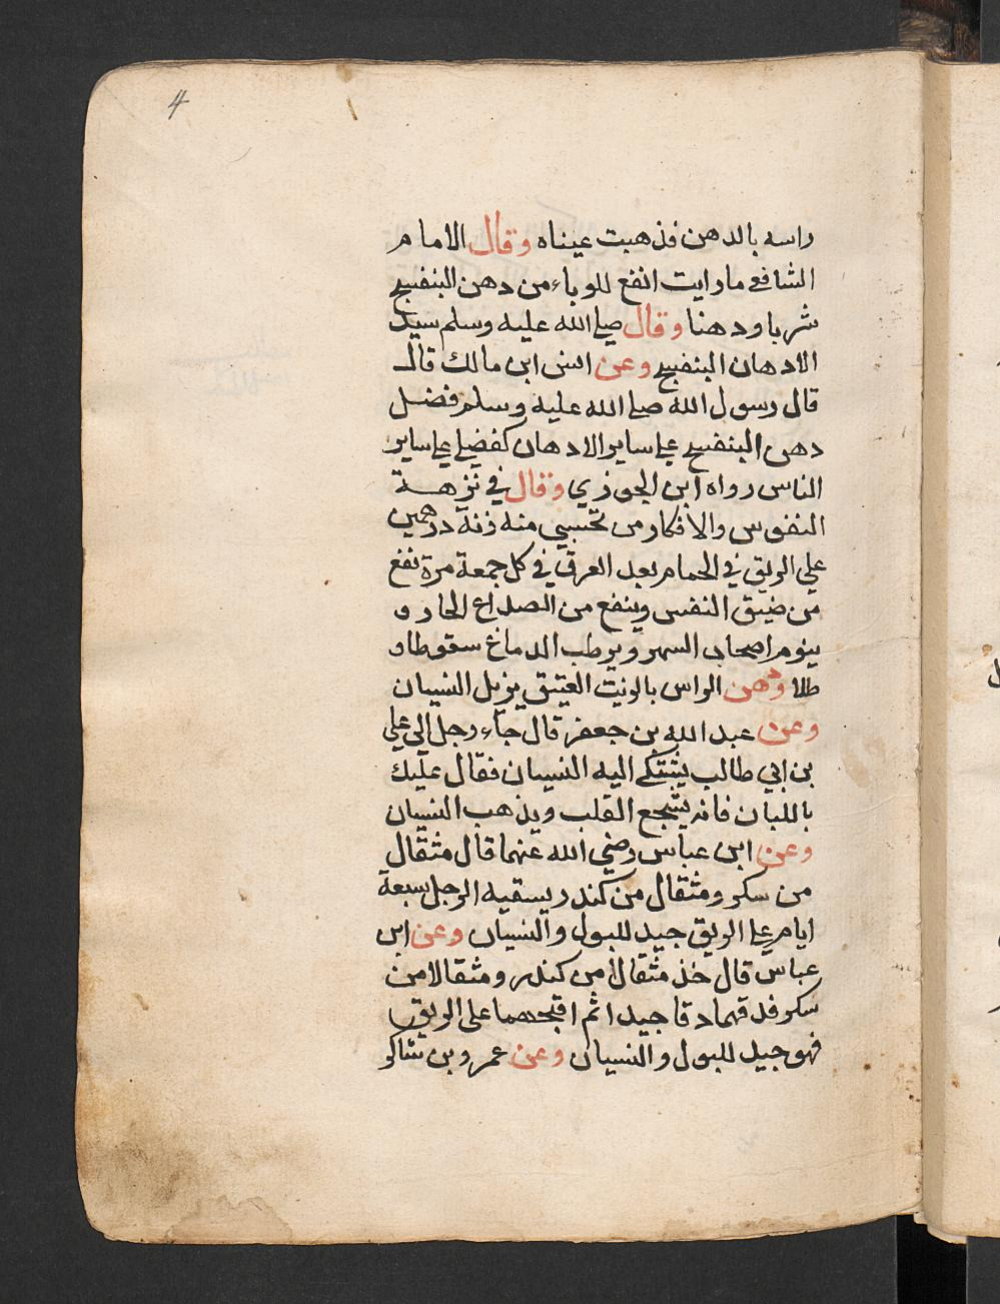 4
راسه بالدهن فذهبت عيناه وقال الامام
الشافعي مارايت انفع للوباء من دهن البنفسج
شربا ودهنا وقال صلى الله عليه وسلم سيد
الادهان البنفسج وعن انس ابن مالك قال
قال رسول الله صلى الله عليه وسلم فضل
دهن البنفسج على ساير الادهان كفضلي على ساير
الناس رواه ابن الجوزي وقال في نزهة
النفوس والافكار من تحسي منه زنة درهمين
علي الريق في الحمام بعد العرق في كل جمعة مرة نفع
من ضيق النفس وينفع من الصداع الحار و
ينوم اصحاب السهر ويرطب الدماغ سعوطا و
طلا ودهن الراس بالزيت العتيق يزيل النسيان
وعن عبد الله بن جعفر قال جاء رجل الي علي
بن ابي طالب يشتكي اليه النسيان فقال عليك
باللبان فانه يشجع القلب ويذهب النسيان
وعن ابن عباس رضي الله عنهما قال مثقال
من سكر ومثقال من كندر يسقيه الرجل سبعة
ايام على الريق جيد للبول والنسيان وعن ابن
عباس قال خذ مثقالا من كندر ومثقالا من
سكر فدقهما دقا جيدا ثم اقمحهما على الريق
فهو جيد للبول والنسيان وعن عمرو بن شاكر